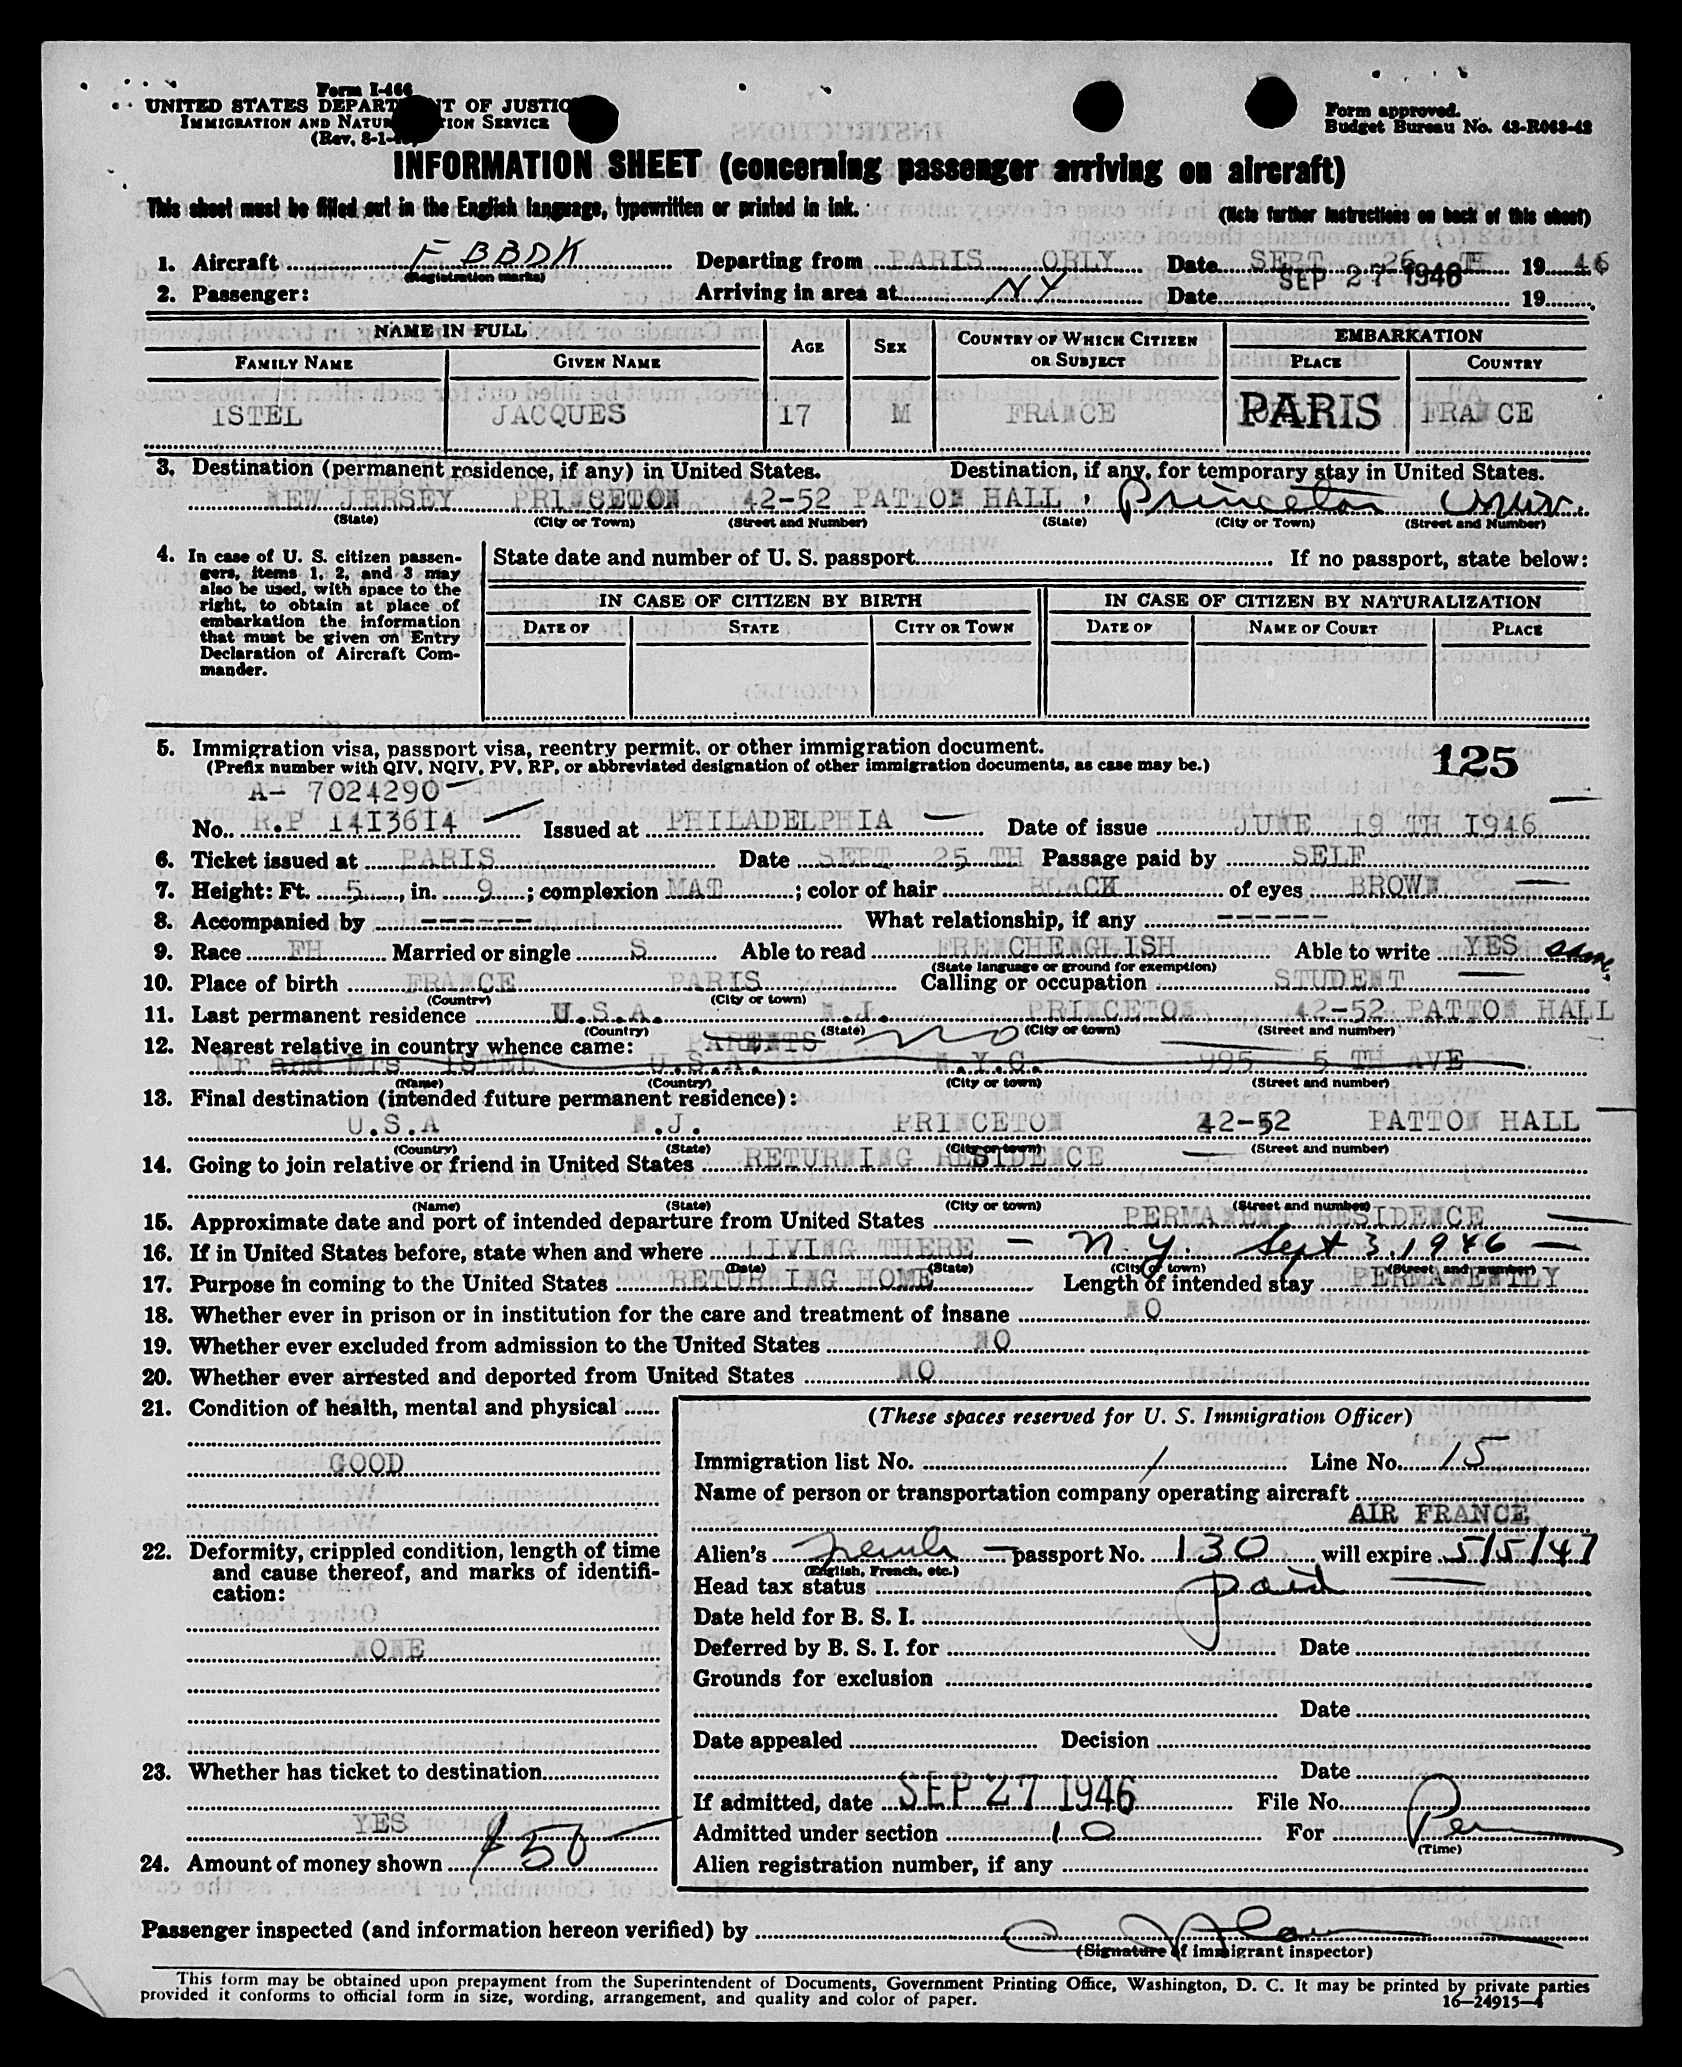 Form I-466
UNITED STATES DEPARTMENT OF JUSTICE
IMMIGRATION AND NATURALIZATION SERVICE
(Rev. 8-1-
Form approved.
Budget Bureau No. 43-R063-42
INFORMATION SHEET (concerning passenger arriving on aircraft)
This sheet must be filled out in the English language, typewritten or printed in ink.
(Note further instructions on back of this sheet)
1. Aircraft F BBDK Departing from PARIS ORLY Date SEPT 26 TH 1946
(Registration marks)
2. Passenger: Arriving in area at NY Date SEP 27 1946 19
NAME IN FULL AGE SEX COUNTRY OF WHICH CITIZEN OR SUBJECT EMBARKATION
FAMILY NAME GIVEN NAME PLACE COUNTRY
ISTEL JACQUES 17 M FRANCE PARIS FRANCE
3. Destination (permanent residence, if any) in United States. Destination, if any, for temporary stay in United States.
NEW JERSEY PRINCETON 42-52 PATTON HALL, Princeton Univ.
(State) (City or Town) (Street and Number) (State) (City or Town) (Street and Number)
4. In case of U. S. citizen passen-
gers, items 1, 2, and 3 may
also be used, with space to the
right, to obtain at place of
embarkation the information
that must be given on Entry
Declaration of Aircraft Com-
mander.
State date and number of U. S. passport If no passport, state below:
IN CASE OF CITIZEN BY BIRTH IN CASE OF CITIZEN BY NATURALIZATION
DATE OF STATE CITY OR TOWN DATE OF NAME OF COURT PLACE
5. Immigration visa, passport visa, reentry permit, or other immigration document.
(Prefix number with QIV, NQIV, PV, RP, or abbreviated designation of other immigration documents, as case may be.)
125
A- 7024290
No. R.P 1413614 Issued at PHILADELPHIA Date of issue JUNE 19 TH 1946
6. Ticket issued at PARIS Date SEPT 25 TH Passage paid by SELF
7. Height: Ft. 5, in. 9; complexion MAT; color of hair BLACK of eyes BROWN
8. Accompanied by ------- What relationship, if any ------
9. Race FH Married or single S Able to read FRENCHENGLISH Able to write YES same
(State language or ground for exemption)
10. Place of birth FRANCE PARIS Calling or occupation STUDENT
(Country) (City or town)
11. Last permanent residence U.S.A. N.J. PRINCETON 42-52 PATTON HALL
(Country) (State) (City or town) (Street and number)
12. Nearest relative in country whence came: PARENTS no
Mr and Mrs ISTEL U.S.A. N.Y.C. 995 5 TH AVE
(Name) (Country) (City or town) (Street and number)
13. Final destination (intended future permanent residence):
U.S.A N.J. PRINCETON 42-52 PATTON HALL
(Country) (State) (City or town) (Street and number)
14. Going to join relative or friend in United States RETURNING RESIDENCE
(Name) (State) (City or town) (Street and number)
15. Approximate date and port of intended departure from United States PERMANENT RESIDENCE
16. If in United States before, state when and where LIVING THERE - N.Y. Sept 3, 1946 -
(Date) (State) (City or town) (Street and number)
17. Purpose in coming to the United States RETURNING HOME Length of intended stay PERMANENTLY
18. Whether ever in prison or in institution for the care and treatment of insane NO
19. Whether ever excluded from admission to the United States NO
20. Whether ever arrested and deported from United States NO
21. Condition of health, mental and physical
GOOD
22. Deformity, crippled condition, length of time
and cause thereof, and marks of identifi-
cation:
NONE
23. Whether has ticket to destination
YES
24. Amount of money shown $50
(These spaces reserved for U. S. Immigration Officer)
Immigration list No. 1 Line No. 15
Name of person or transportation company operating aircraft
AIR FRANCE
Alien's French passport No. 130 will expire 5/5/47
(English, French, etc.)
Head tax status paid
Date held for B. S. I.
Deferred by B. S. I. for Date
Grounds for exclusion
Date
Date appealed Decision
Date
If admitted, date SEP 27 1946 File No.
Admitted under section 10 For Per
(Time)
Alien registration number, if any
Passenger inspected (and information hereon verified) by
(Signature of immigrant inspector)
This form may be obtained upon prepayment from the Superintendent of Documents, Government Printing Office, Washington, D. C. It may be printed by private parties
provided it conforms to official form in size, wording, arrangement, and quality and color of paper.
16-24915-4